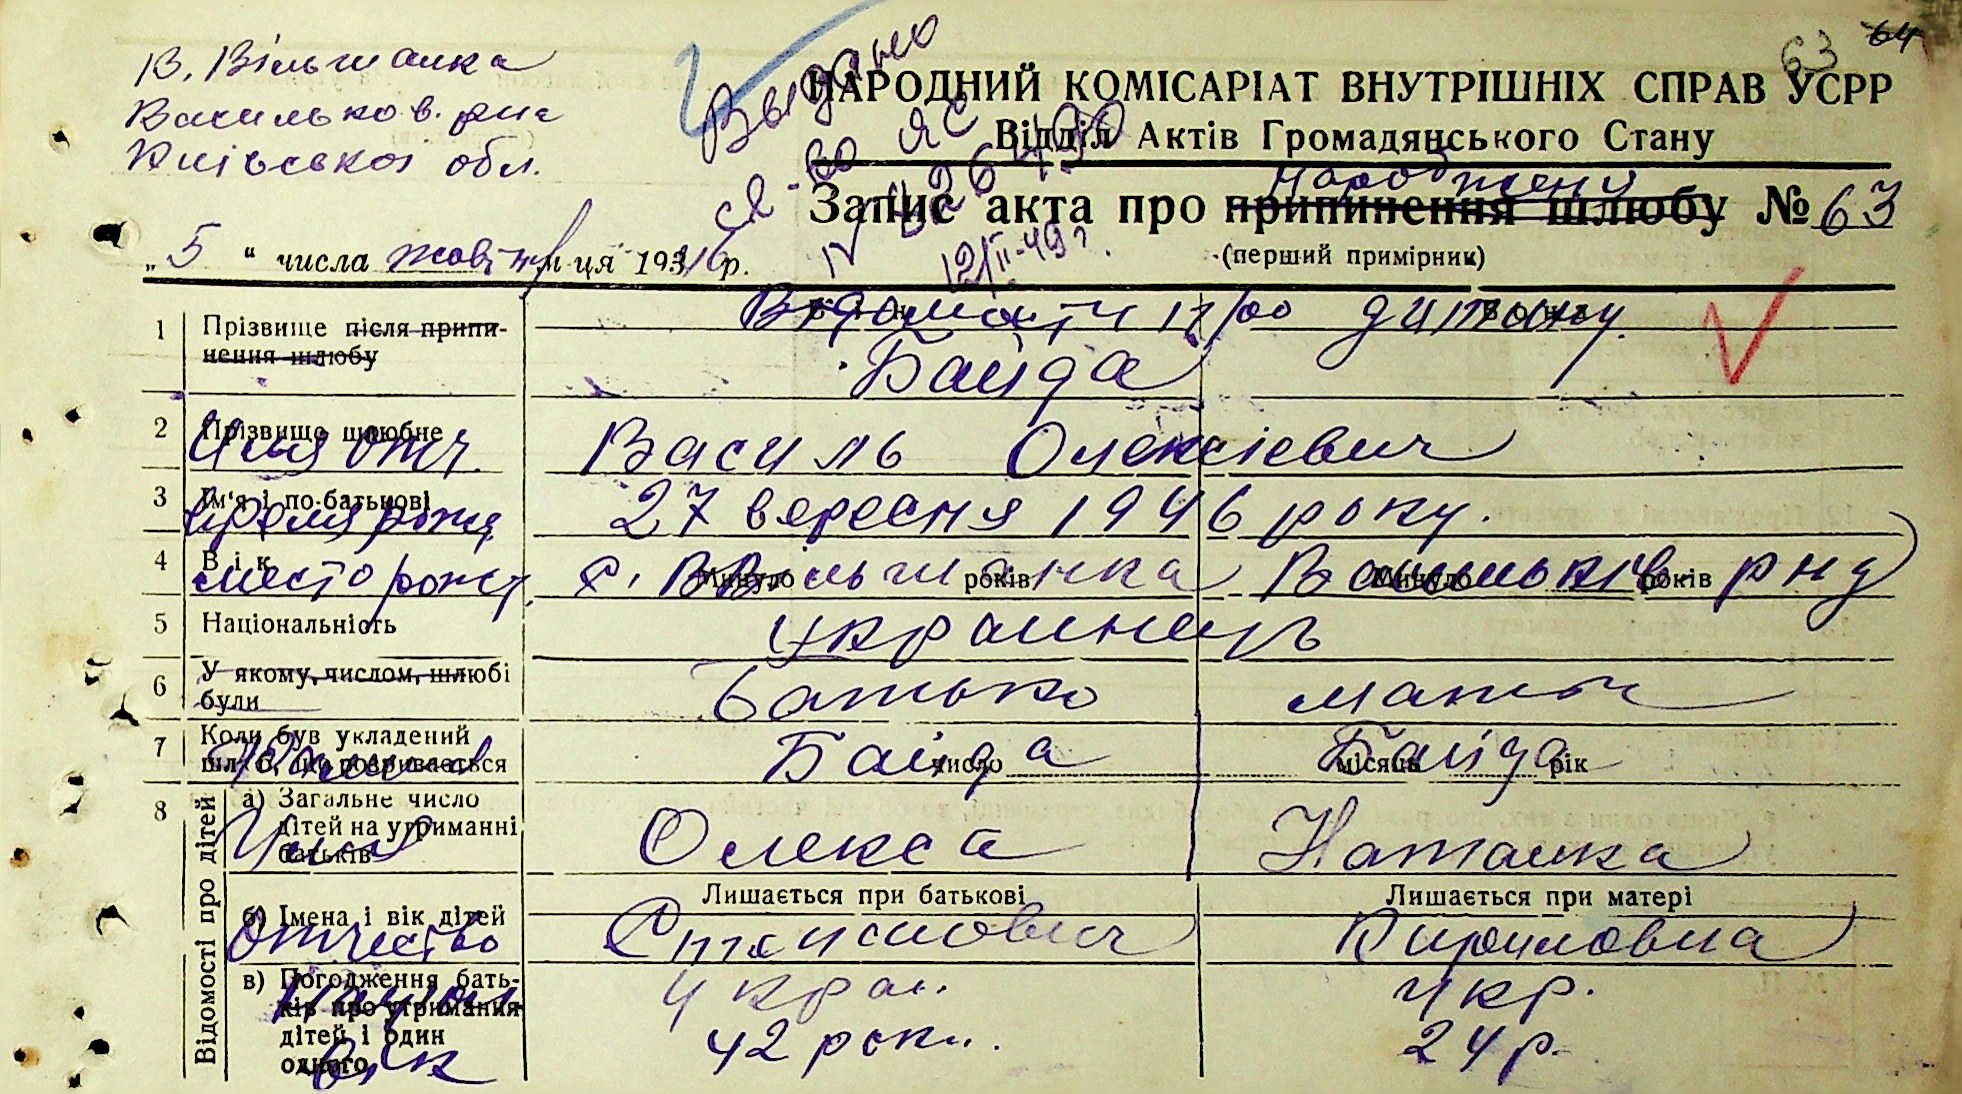 63 64
В. Вільшанка
Васильков. рна
Київської обл.
Выдано
св-во ЯС
IV 426490
12/II-49 г.
НАРОДНИЙ КОМІСАРІАТ ВНУТРІШНІХ СПРАВ УСРР
Відділ Актів Громадянського Стану
народжену
Запис акта про припинення шлюбу № 63
(перший примірник)
„ 5 “ числа жовтня м-ця 1946 р.
Відомости про дитину.
1 Прізвище після припи-
нення шлюбу
Байда
2 Прізвище шлюбне
Имя отч. Василь Олексієвич
3 Ім'я і по-батькові
Время рожд. 27 вересня 1946 року.
4 Вік Минуло років Минуло років
место рожд. с. В. Вільшанка Васильків рна
5 Національність украинець
6 У якому, числом, шлюбі
були
батько мати
7 Коли був укладений
шлюб, що розривається число місяць рік
Фамилия Байда Байда
8 Відомості про дітей
а) Загальне число
дітей на утриманні
батьків
Имя Олекса Наталка
Лишається при батькові Лишається при матері
б) Імена і вік дітей
Отчество Кириловна
в) Погодження бать-
ків про утримання
дітей і один
одного
Национ. укра. укр.
Вік 42 рок. 24 р.